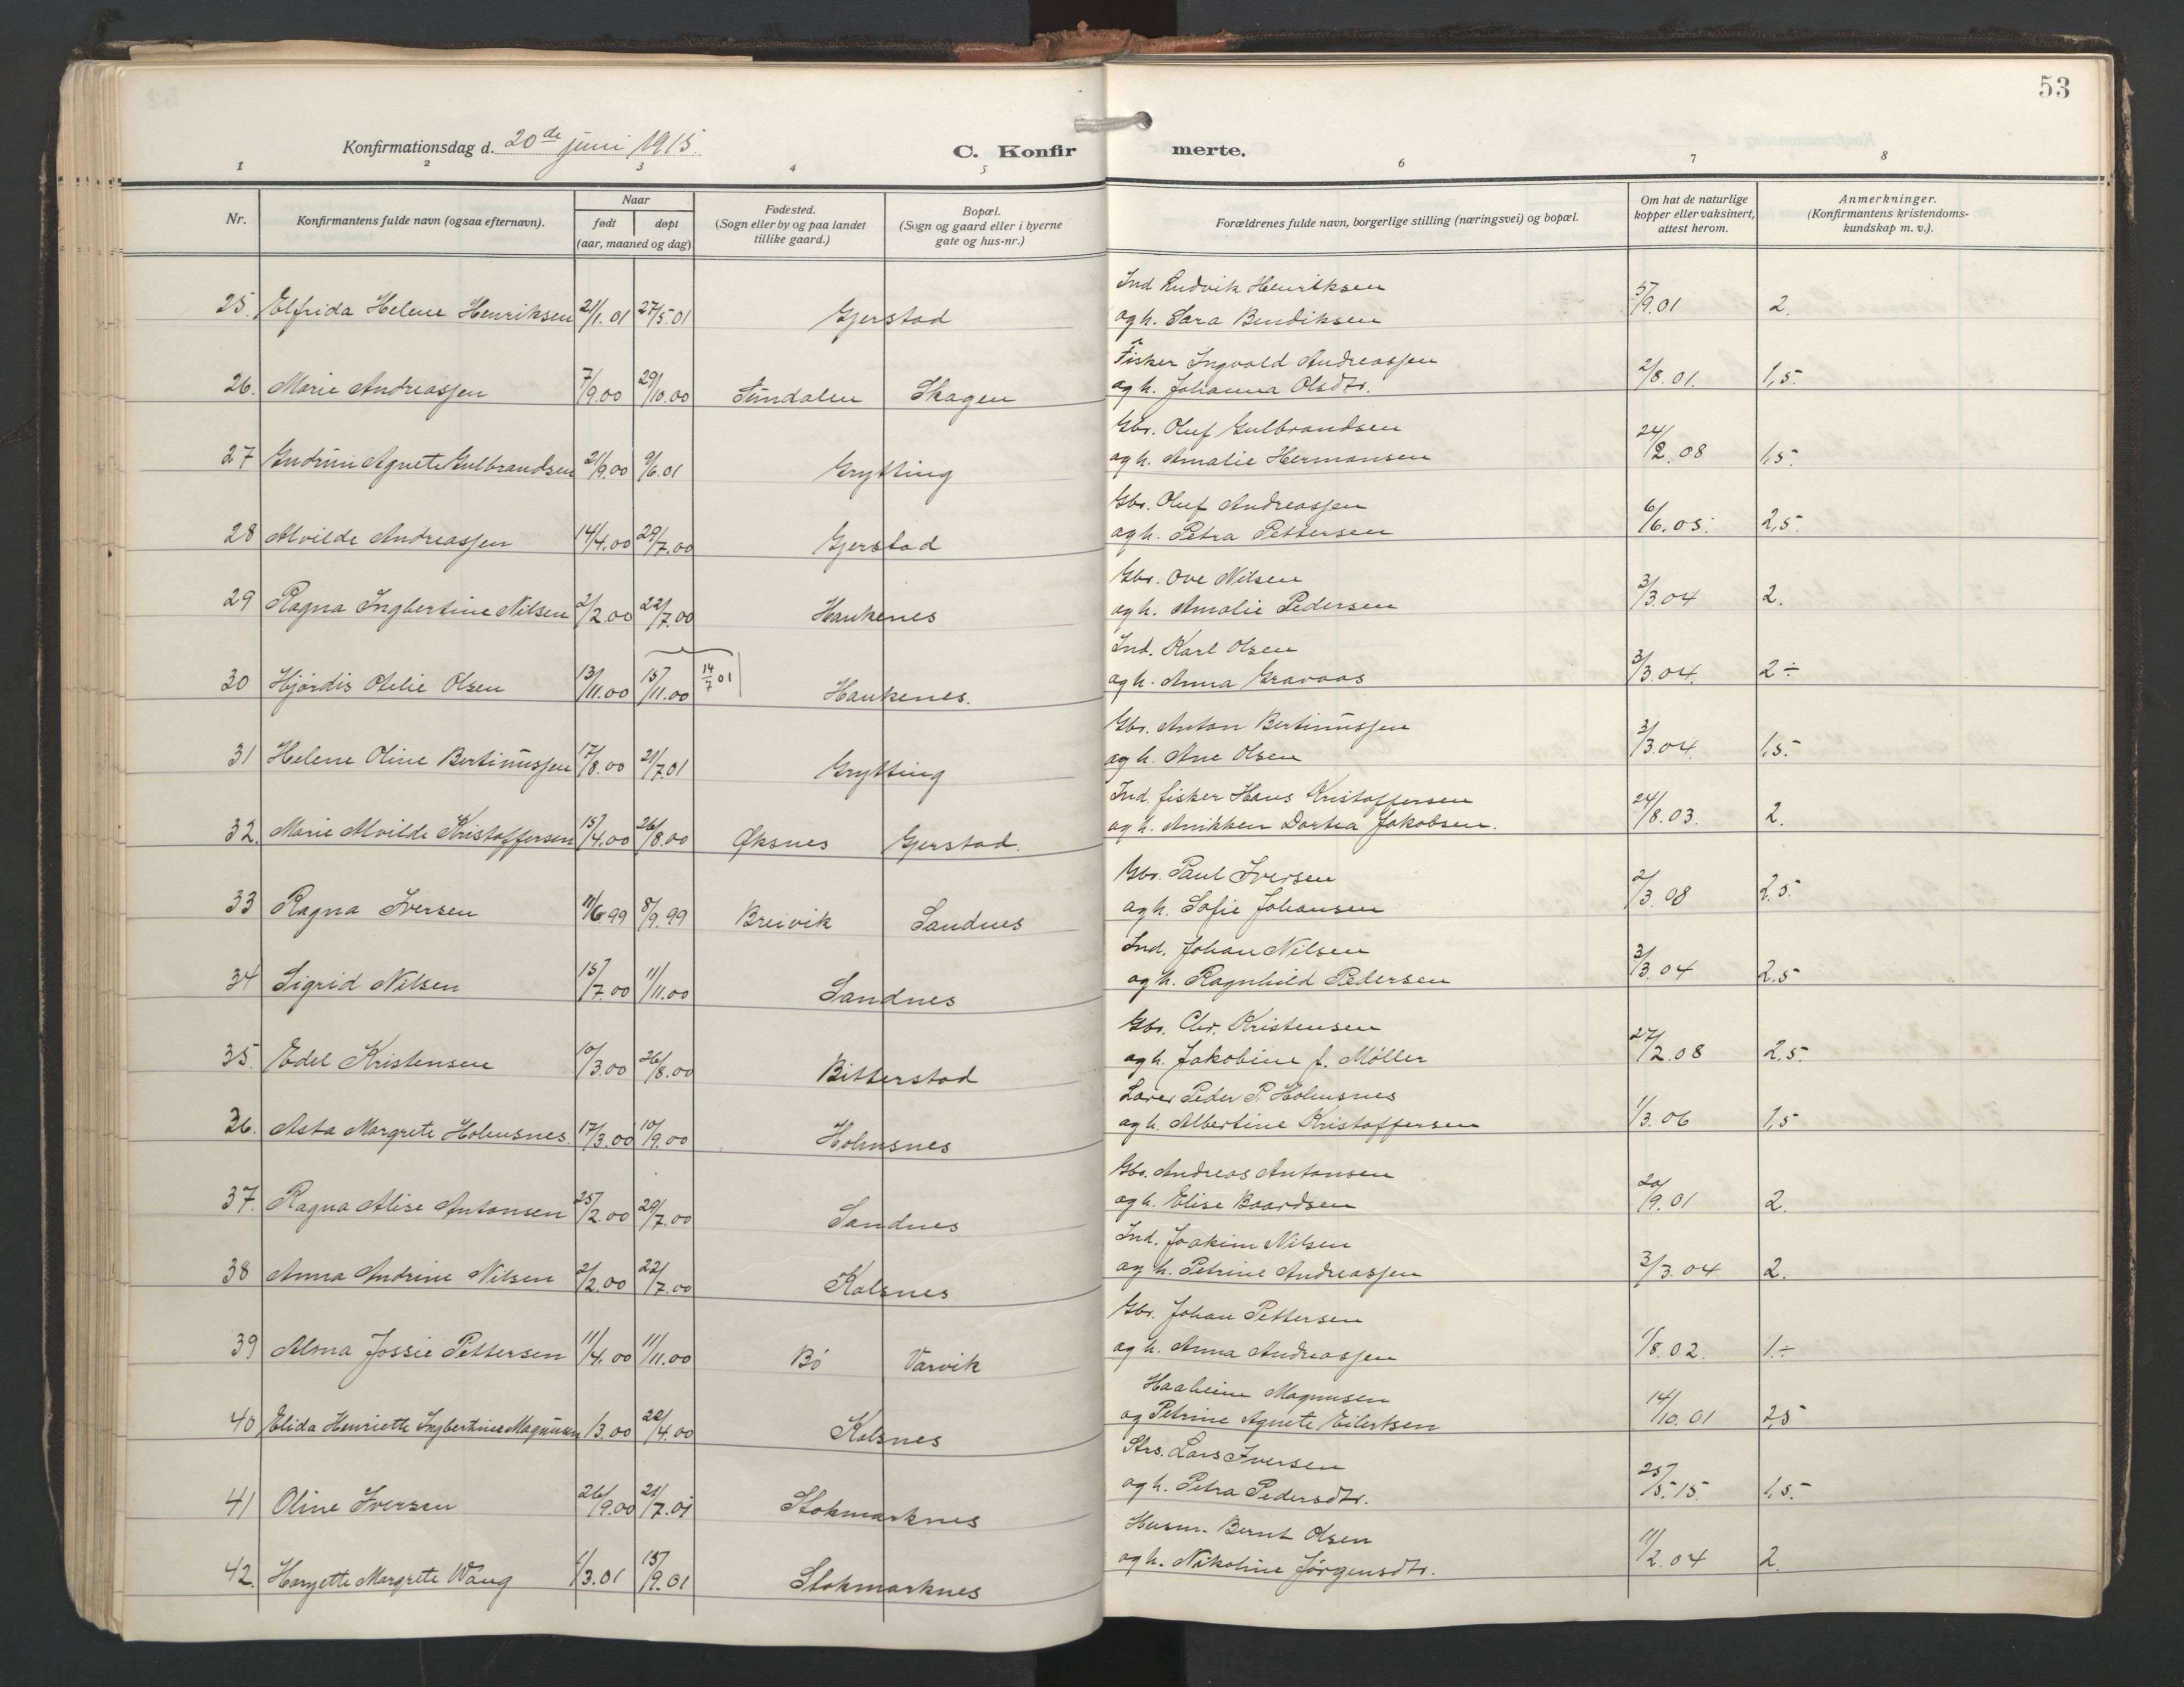 53
Konfirmationsdag d. 20de juni 1915.
C. Konfirmerte.
1 2 3 4 5 6 7 8
Nr. | Konfirmantens fulde navn (ogsaa efternavn). | Naar født | døpt (aar, maaned og dag) | Fødested. (Sogn eller by og paa landet tillike gaard.) | Bopæl. (Sogn og gaard eller i byerne gate og hus-nr.) | Forældrenes fulde navn, borgerlige stilling (næringsvei) og bopæl. | Om hat de naturlige kopper eller vaksinert, attest herom. | Anmerkninger. (Konfirmantens kristendomskundskap m. v.).
25. Elfrida Helene Henriksen 21/1.01 27/5.01 Gjerstad Ind Ludvik Henriksen
og h. Sara Bendiksen 5/9.01 2.
26. Marie Andreassen 7/9.00 29/10.00 Sundalen Skagen Fisker Ingvald Andreassen
og h. Johanna Olsdtr. 2/8.01. 1,5.
27 Gudrun Agnete Gulbrandsen 21/9.00 9/6.01 Grytting Gbr. Oluf Gulbrandsen
og h. Amalie Hermansen 24/2.08 1,5.
28 Alvilde Andreassen 14/4.00 29/7.00 Gjerstad Gbr. Oluf Andreassen
og h. Petra Pettersen 6/6.05. 2,5.
29 Ragna Ingbertine Nilsen 2/2.00 22/7.00 Haukenes Gbr. Ove Nilsen
og h. Amalie Pedersen 3/3.04 2.
30 Hjördis Otelie Olsen 13/11.00 15/11.00 14/7 01 Haukenes. Ind. Karl Olsen
og h. Anna Gravaas 3/3.04. 2÷
31 Helene Oline Bertinussen 17/8.00 21/7.01 Grytting Gbr. Anton Bertinussen
og h. Ane Olsen 3/3.04. 1,5.
32. Marie Alvilde Kristoffersen 15/4.00 26/8.00 Øksnes Gjerstad. Ind. fisker Hans Kristoffersen
og h. Anikken Dortea Jakobsen. 24/8.03. 2.
33 Ragna Iversen 11/6 99 8/9.99 Breivik Sandnes Gbr. Paul Iversen
og h. Sofie Johansen 2/3.08 2,5.
34 Sigrid Nilsen 15/7.00 11/11.00 Sandnes Ind. Johan Nilsen
og h. Ragnhild Pedersen 3/3.04 2,5
35. Edel Kristensen 10/3.00 26/8.00 Bitterstad Gbr. Chr. Kristensen
og h. Jakobine f. Möller 27/2.08 2,5.
36. Asta Margrete Holmsnes. 17/3.00 10/9.00 Holmsnes Lærer Peder P. Holmsnes
og h. Albertine Kristoffersen 1/3.06 1,5
37. Ragna Alise Antonsen 25/2.00 29/7.00 Sandnes Gbr. Andreas Antonsen
og h. Elise Baardsen 20/9.01 2.
38 Anna Andrine Nilsen 2/2.00 22/7.00 Kalsnes Ind. Joakim Nilsen
og h. Petrine Andreassen 3/3.04 2.
39 Alma Jossie Pettersen 11/4.00 11/11.00 Bö Varvik Gbr. Johan Pettersen
og h. Anna Andreassen 1/8.02. 1.÷
40 Elida Henriette Ingbertine Magnusen 1/3.00 22/4.00 Kalsnes Magnusen
og Petrine Agnete Eilertsen 14/10.01 2,5
41 Oline Iversen 26/9.00 21/7.01 Stokmarknes Strs. Lars Iversen
og h. Petra Pedersdtr. 25/5.15. 1,5.
42. Haryette Margrete Waug 1/3.01 15/9.01 Stokmarknes Husm. Bernt Olsen
og h. Nikoline Jörgensdtr. 11/2.04 2.